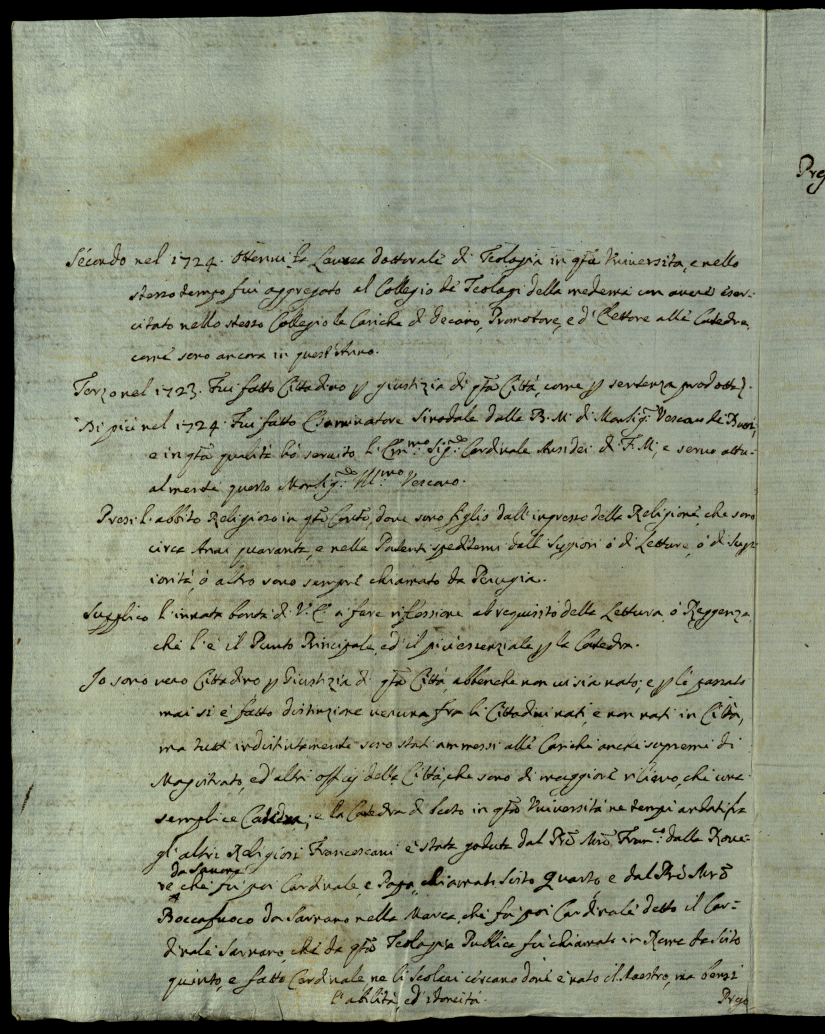 Secondo nel 1724. Ottenni la Laurea dottorale di Teologia in qsta Vniversita, e nello
stesso tempo fui aggregato al Collegio de Teologi della medema con avere eser-
citato nello stesso Collegio le Cariche di Decano, Promotore, e d'Elettore alle Catedre,
come sono ancora in quest'Anno.
Terzo nel 1723. Fui fatto Cittadino p giustizia di qsta Città, come p sentenza prodotta
Di più nel 1724. Fui fatto Esaminatore Sinodale dalla B. M. di Monsig.r Vescovo de
e in qsta qualità hò servito l' Em.mo Sig.r Cardinale Ansidei di F. M., e servo attu-
almente questo Monsig.r Ill.mo Vescovo.
Presi l'abbito Religioso in qsto Conto, dove sono figlio dall'ingresso della Religione, che sono
circa Anni quaranta, e nelle Patenti speditemi dalli Supriori ò di Letture, ò di Supr
iorità, ò altro sono sempre chiamato da Perugia.
Supplico l'innata bontà di V. E. a fare riflessione al requisito della Lettura, ò Reggenza,
che l'è il Punto Principale, ed il più essenziale p la Catedra.
Io sono vero Cittadino p Giustizia di qsta Città, abbenche non vi sia nato, e p le passato
mai si è fatto distinzione veruna fra li Cittadini nati, e non nati in Città,
ma tutti indistintamente sono stati ammessi alle Cariche anche supreme di
Magistrato, ed altri offizj della Città, che sono di maggiore rilievo, che una
semplice Catedra; e la Catedra di Scoto in qsta Vniversità ne tempi andati fra
gl'altri Religiosi Francescani è stata goduta dal Pre Mro Fran.co dalla Rove-
da Savona
re che fu poi Cardinale, e Papa, chiamato Sisto Quarto e dal Pre Mro
Boccafuoco da Sarnano nella Marca, che fu poi Cardinale detto il Car-
dinale Sarnano, che da qsta Teologia Publica fu chiamato in Roma da Sisto
quinto, e fatto Cardinale ne li Scolari cercano dove è nato il Maestro, ma bensi
l'abilità, ed idoneità.
Prego